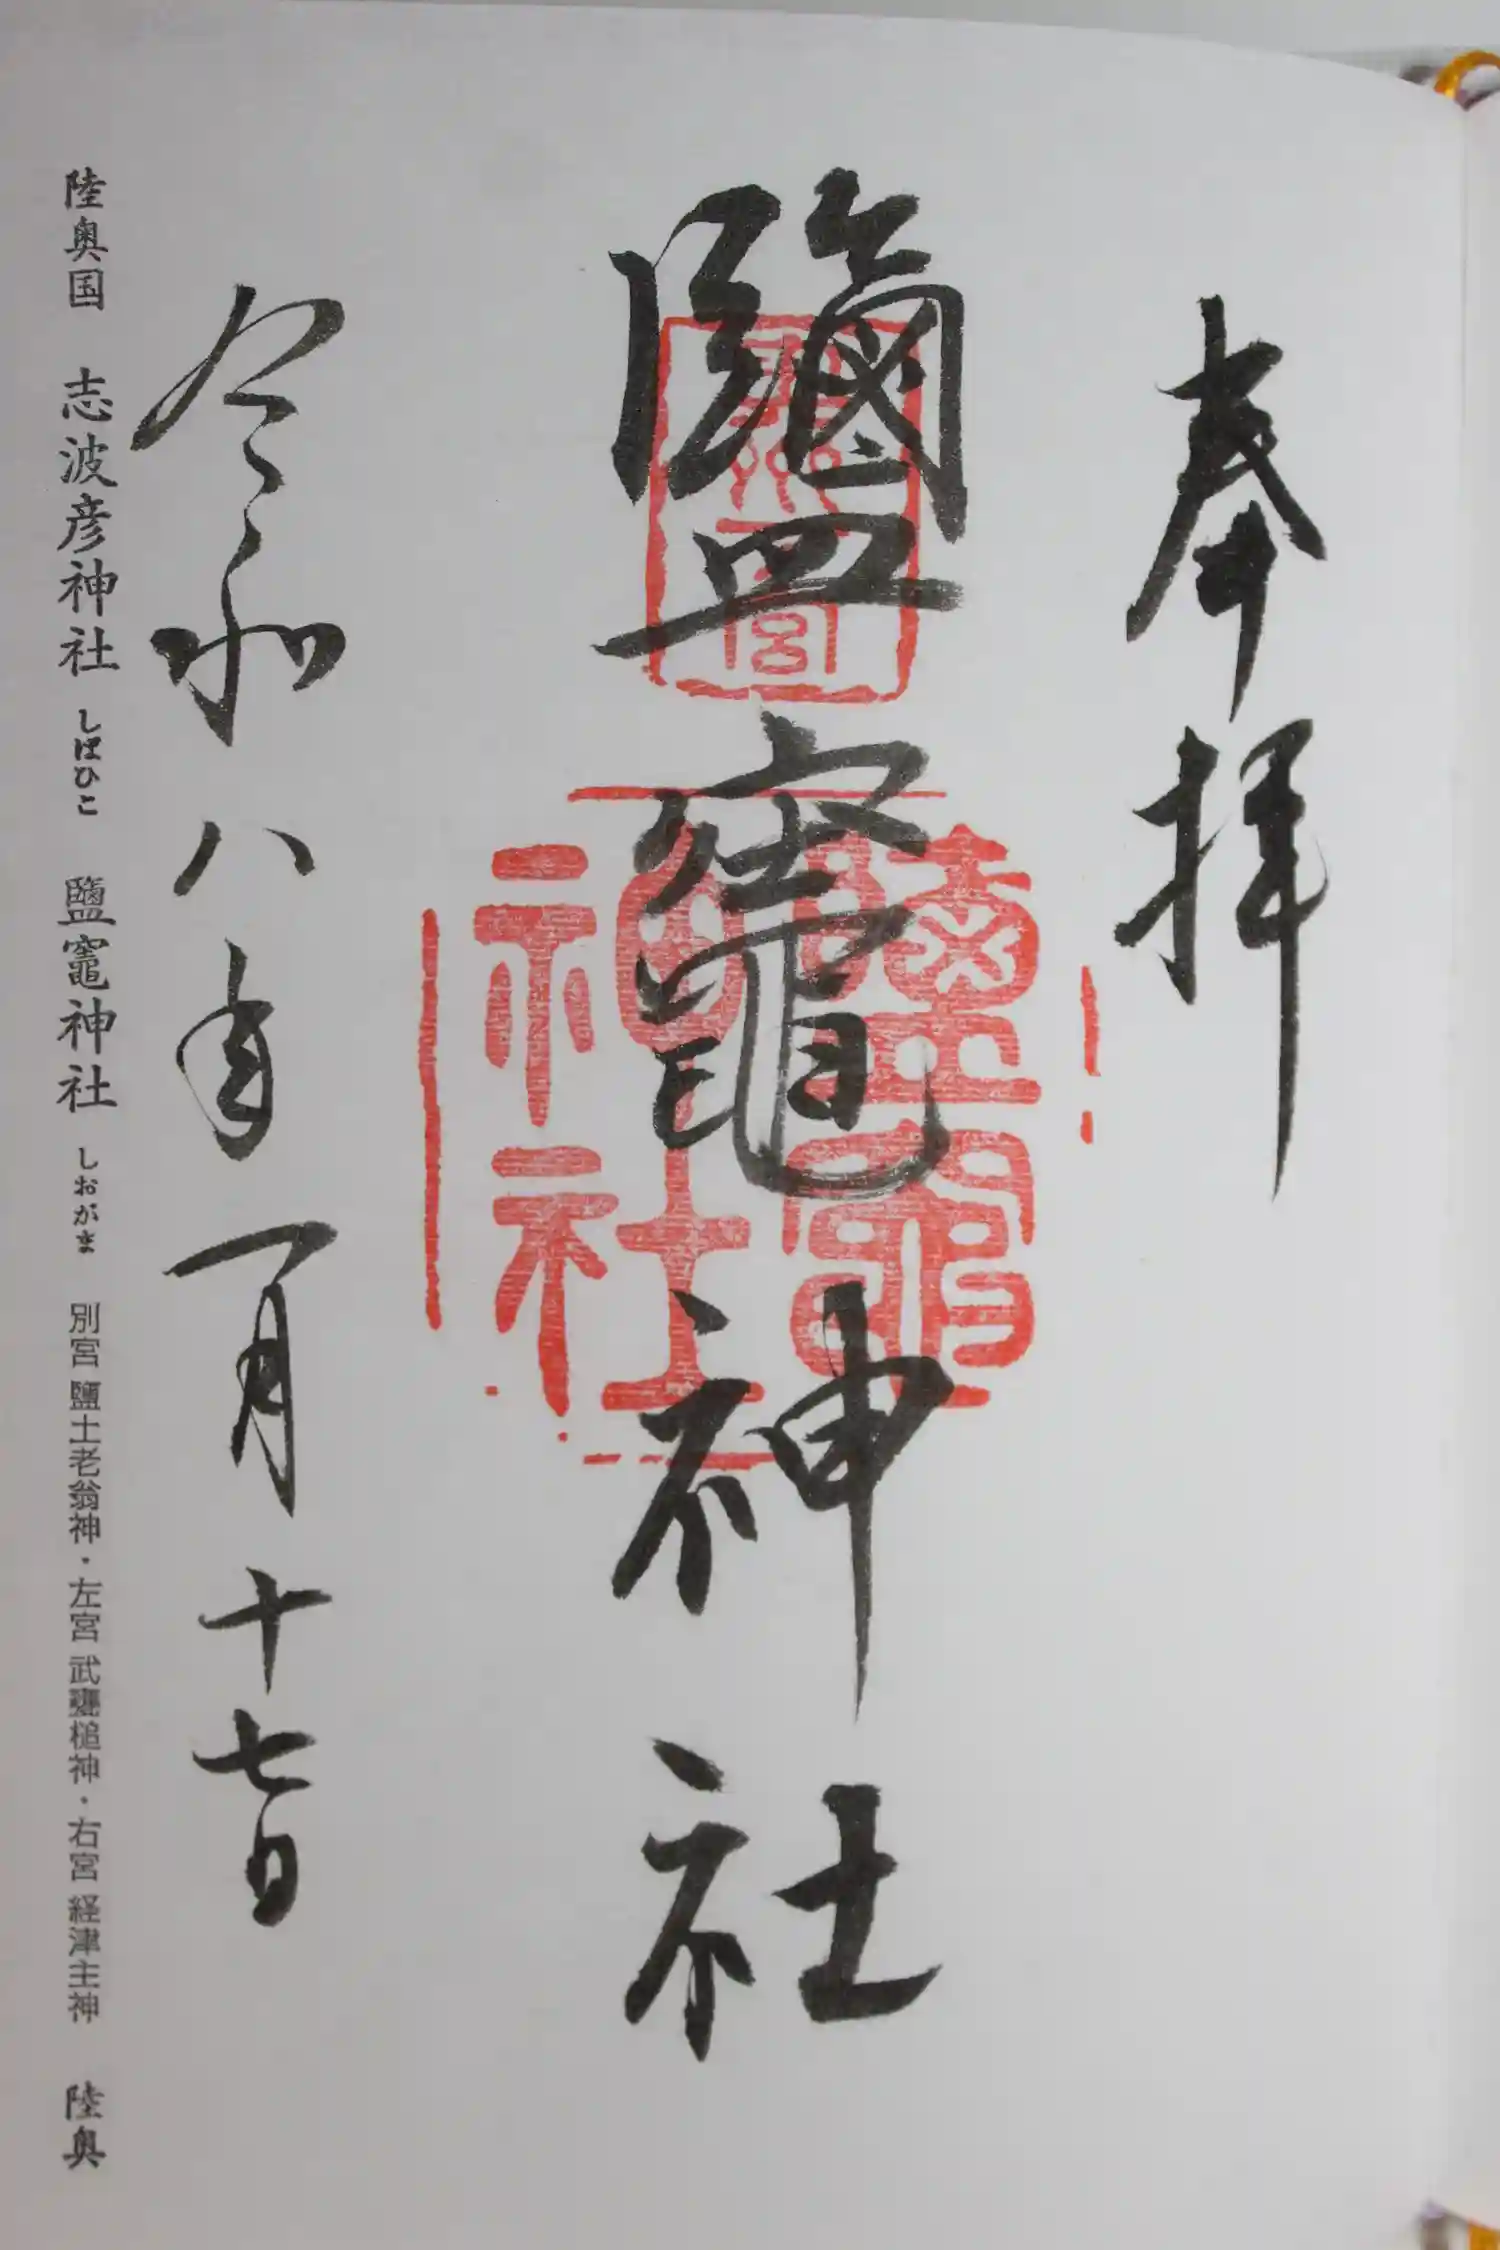 奉拝
鹽竈神社
令和八年一月十七日
陸奥国 志波彦神社 しはひこ 鹽竈神社 しおがま 別宮 鹽土老翁神・左宮 武甕槌神・右宮 経津主神 陸奥